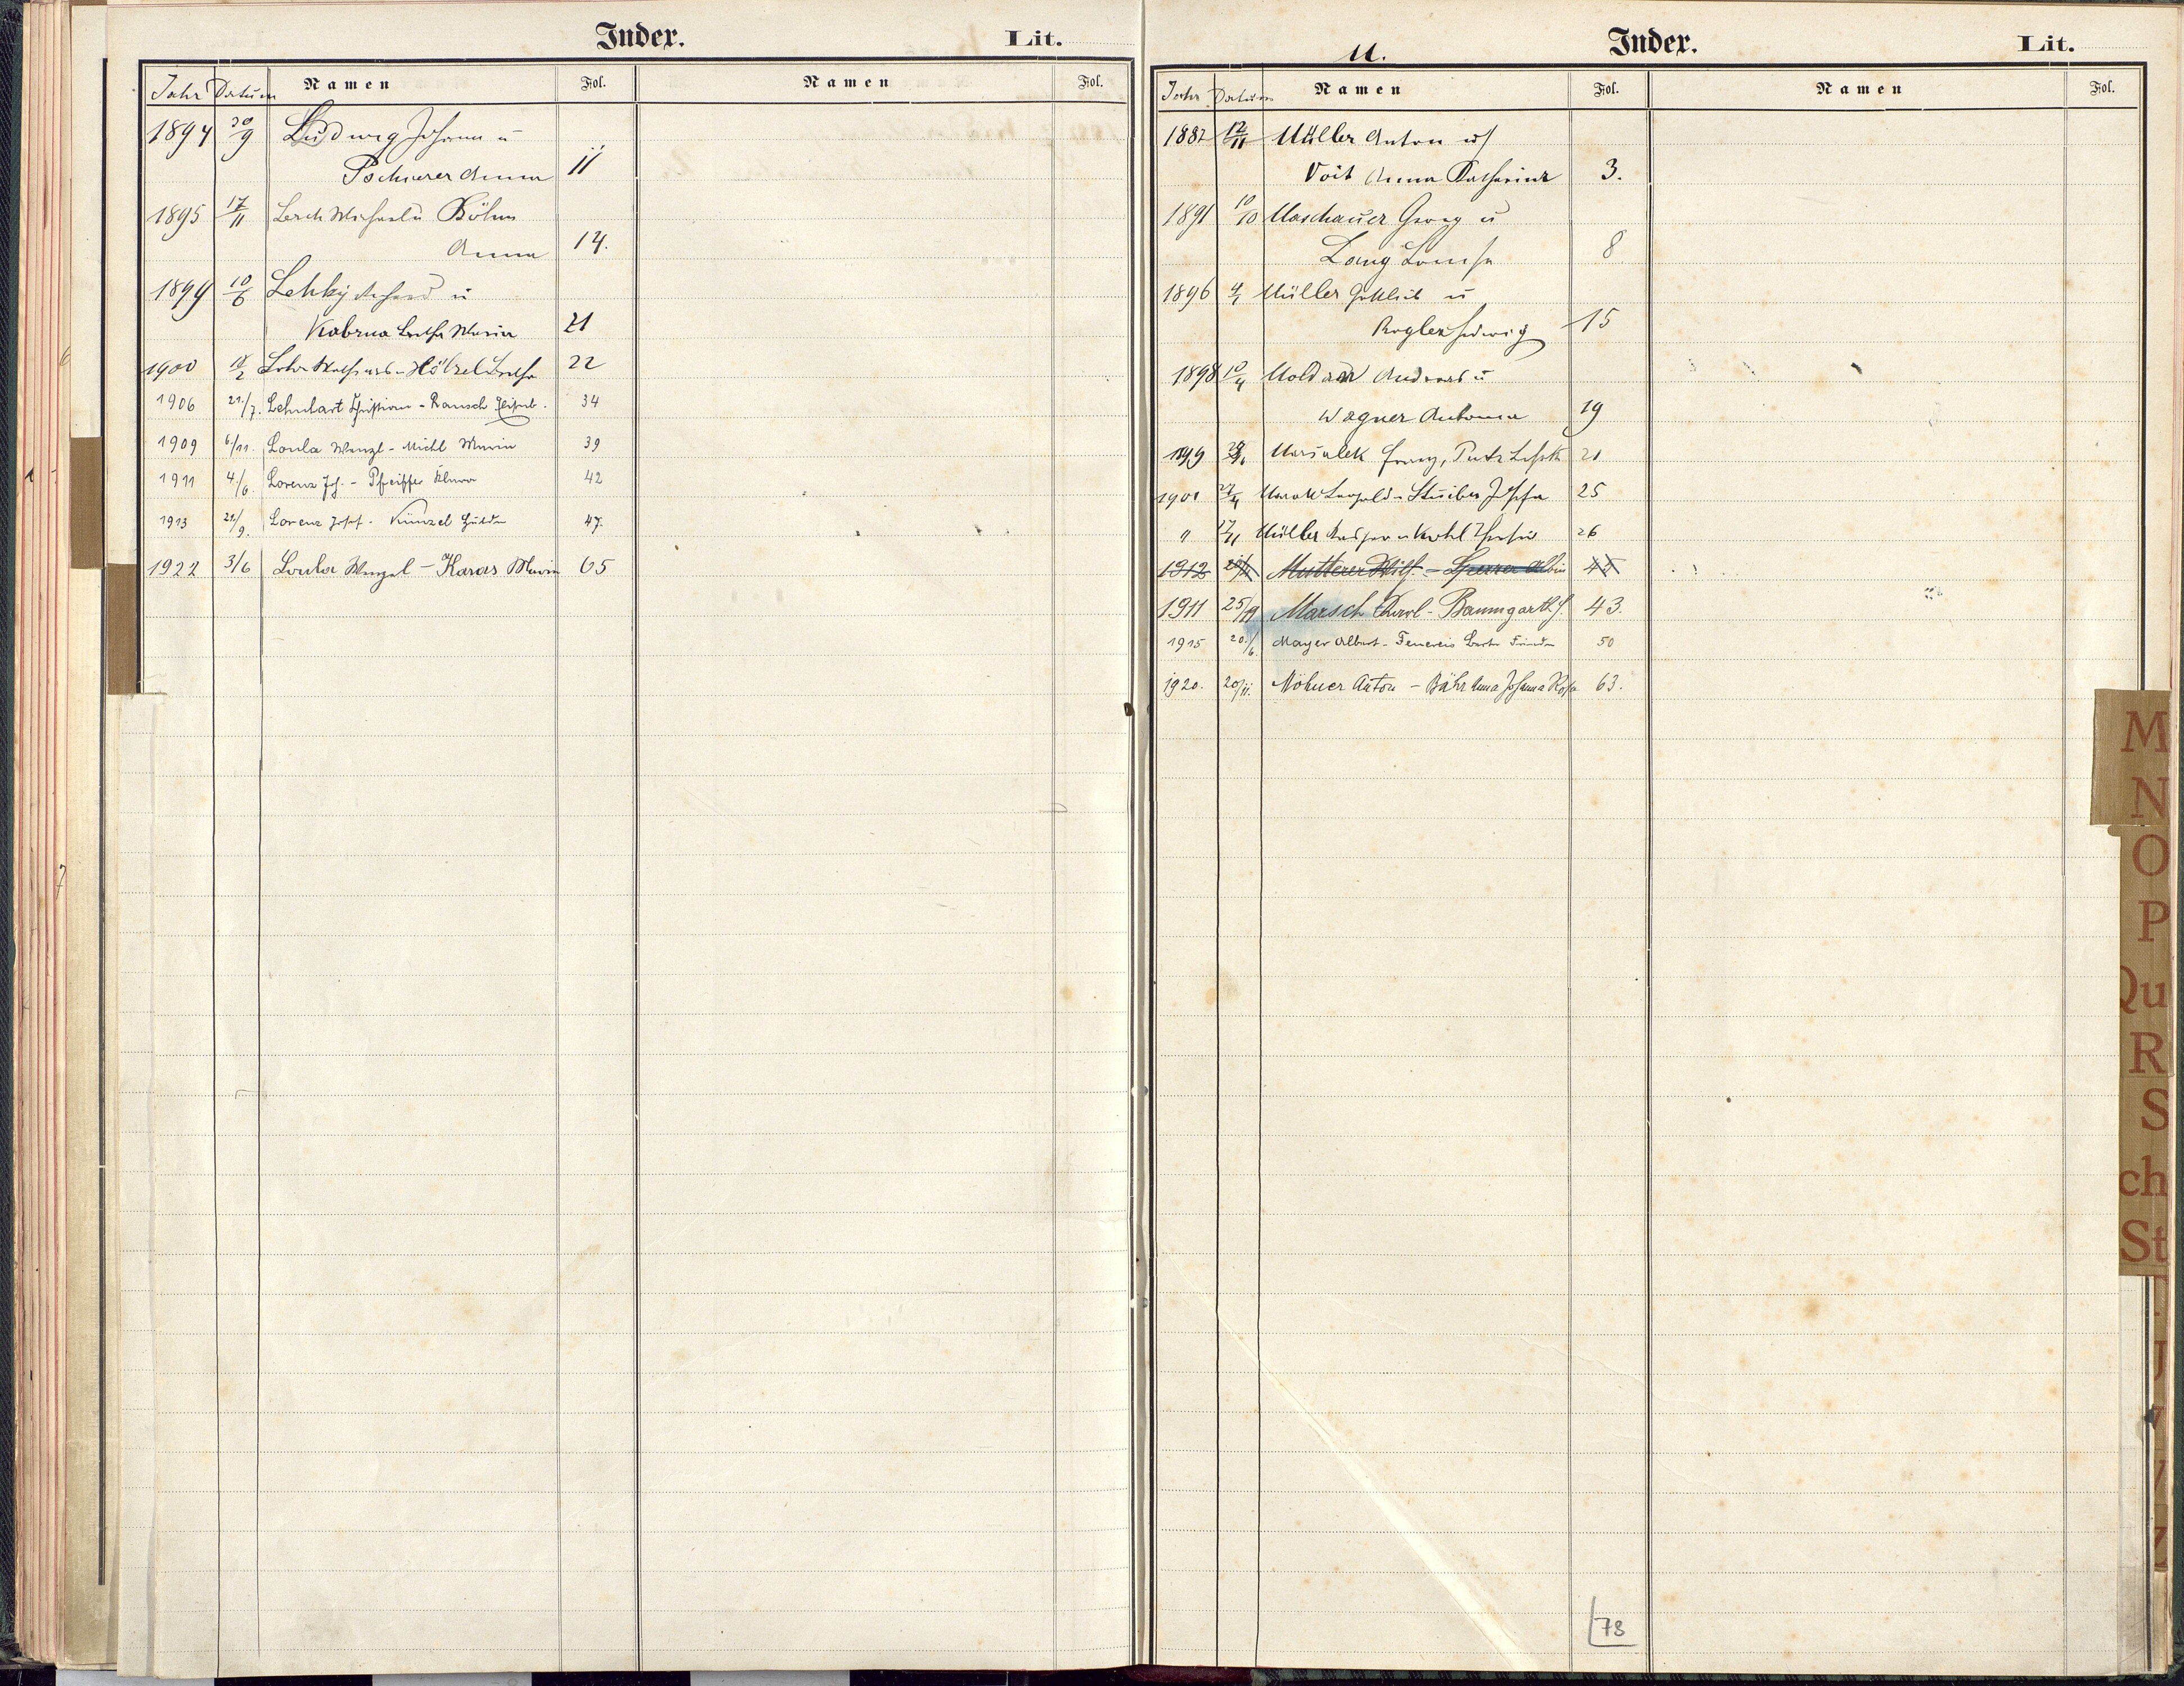 Index. Lit.
Jahr Datum Namen Fol. Namen Fol.
1894 30/9 Ludwig Johann u
Pscherer Anna 11
1895 17/11 Lerch Michael u Böhm
Anna 14.
1899 10/6 Lehky u
Kabrna Maria 21
1900 Hölzel 22
1906 21./7. Lehnhart Christian - Rausch 34
1909 6./11. Loula Wenzl - Michl Maria 39
1911 4./6. Lorenz Jos. - Pfeiffer 42
1913 21./9. Lorenz Josef - Künzel Hulda 47.
1922 3/6 Loula Wenzel - Karas Maria 65
M. Index. Lit.
Jahr Datum Namen Fol. Namen Fol.
1882 12/11 Müller Anton u
Voit Anna Katharina 3.
1891 10/10 Maschauer Georg u
Lang Louise 8
1896 Müller Gottlieb u
Rogler Hedwig 15
1898 10/4 Moldan Andreas u
Wagner Antonia 19
1899 Marsalek Franz, 21
1901 Leopold - Josefa 25
" 17/11 Müller 26
1912 Mutterer Wilh. - Albin
1911 25/ Marsch Karl - Baumgartl 43.
1915 20./6. Mayer Albert - Feuereis Berta 50
1920. 20/11. Möhner Anton - Bähr Anna Johanna Rosa 63.
M
N
O
P
Qu
R
S
ch
St
78